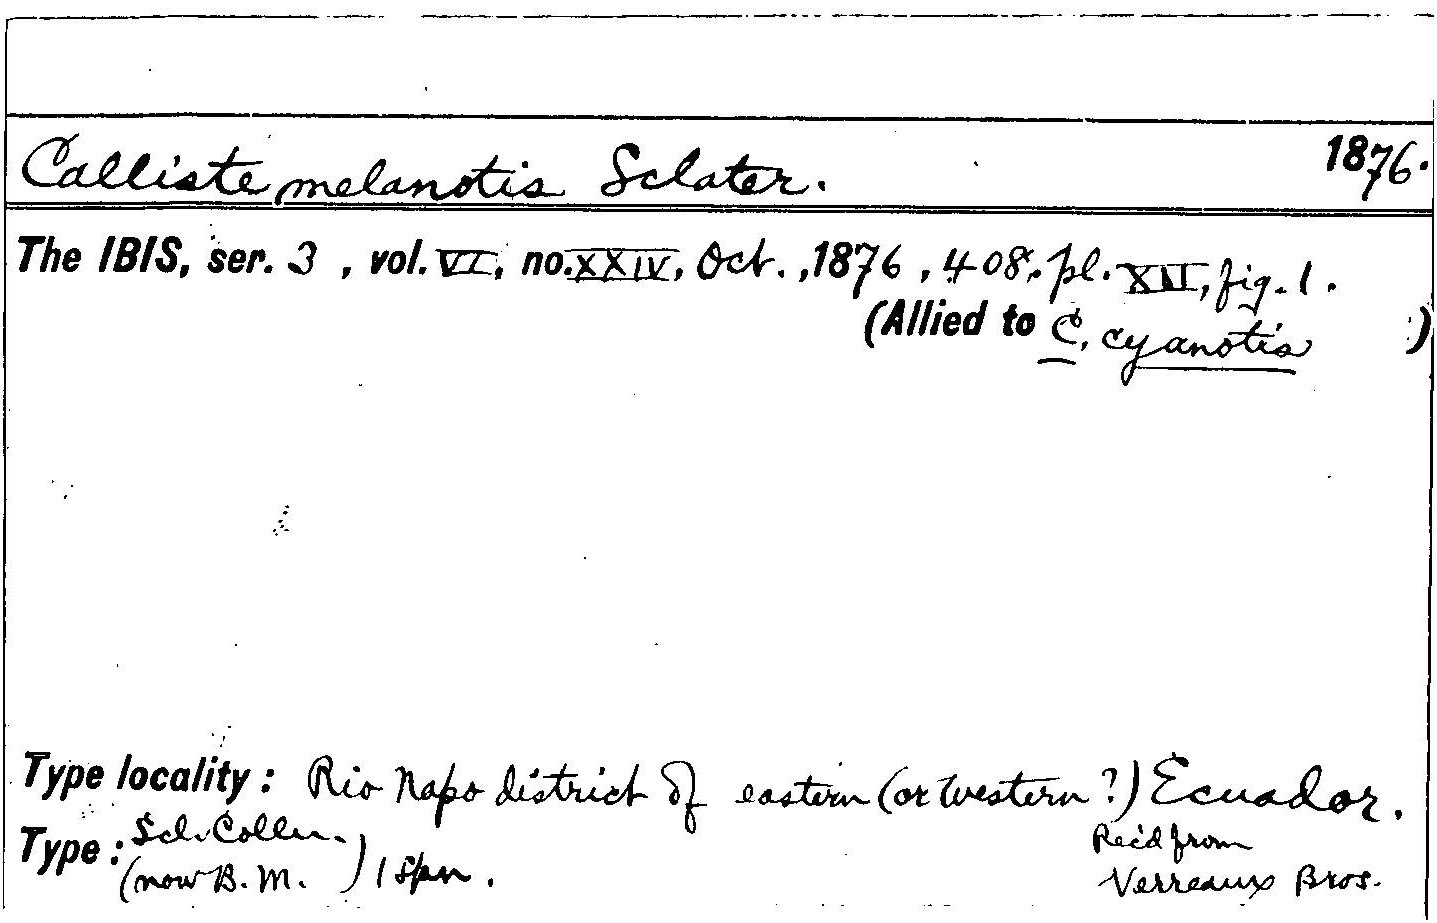 Calliste melanotis Sclater. 1876.
The IBIS, ser. 3, vol. VI, no. XXIV, Oct., 1876, 408, pl. XII, fig. 1.
(Allied to C. cyanotis)
Type locality: Rio Napo district of eastern (or western?) Ecuador.
Type: Scl. Colln. Rec'd from
(now B.M.) 1 spn. Verreaux Bros.